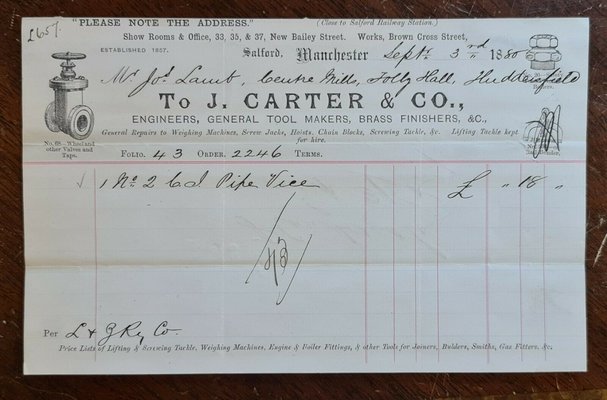 £657.
"PLEASE NOTE THE ADDRESS."
(Close to Salford Railway Station.)
Show Rooms & Office, 33, 35, & 37, New Bailey Street. Works, Brown Cross Street,
ESTABLISHED 1857.
Salford, Manchester Septr. 3rd 1880
Mr. Jos. Lamb, Centre Mills, Folly Hall, Huddersfield
TO J. CARTER & CO.,
ENGINEERS, GENERAL TOOL MAKERS, BRASS FINISHERS, &C.,
General Repairs to Weighing Machines, Screw Jacks, Hoists, Chain Blocks, Screwing Tackle, &c. Lifting Tackle kept for hire.
No. 68—Wheel and
other Valves and
Taps.
FOLIO. 43 ORDER. 2246 TERMS.
1 No. 2 C I Pipe Vice £ " 18 "
Per L & Y Ry Co.
Price Lists of Lifting & Screwing Tackle, Weighing Machines, Engine & Boiler Fittings, & other Tools for Joiners, Builders, Smiths, Gas Fitters, &c.